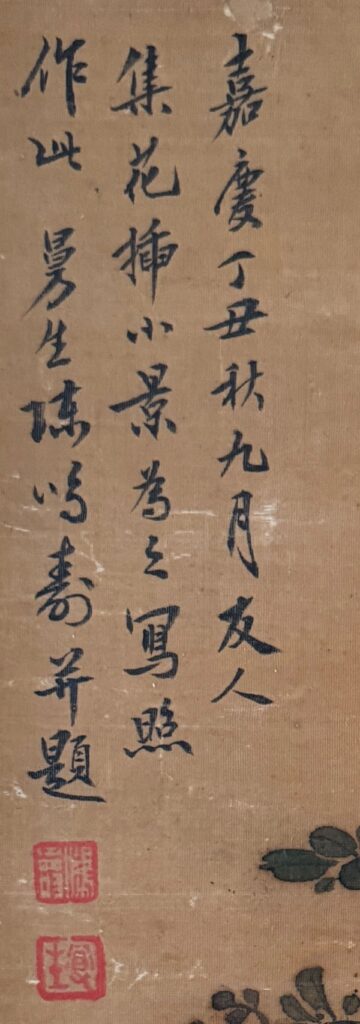 嘉慶丁丑秋九月友人
集花插小景為之寫照
作此 曼生陳鴻壽并題
鴻壽